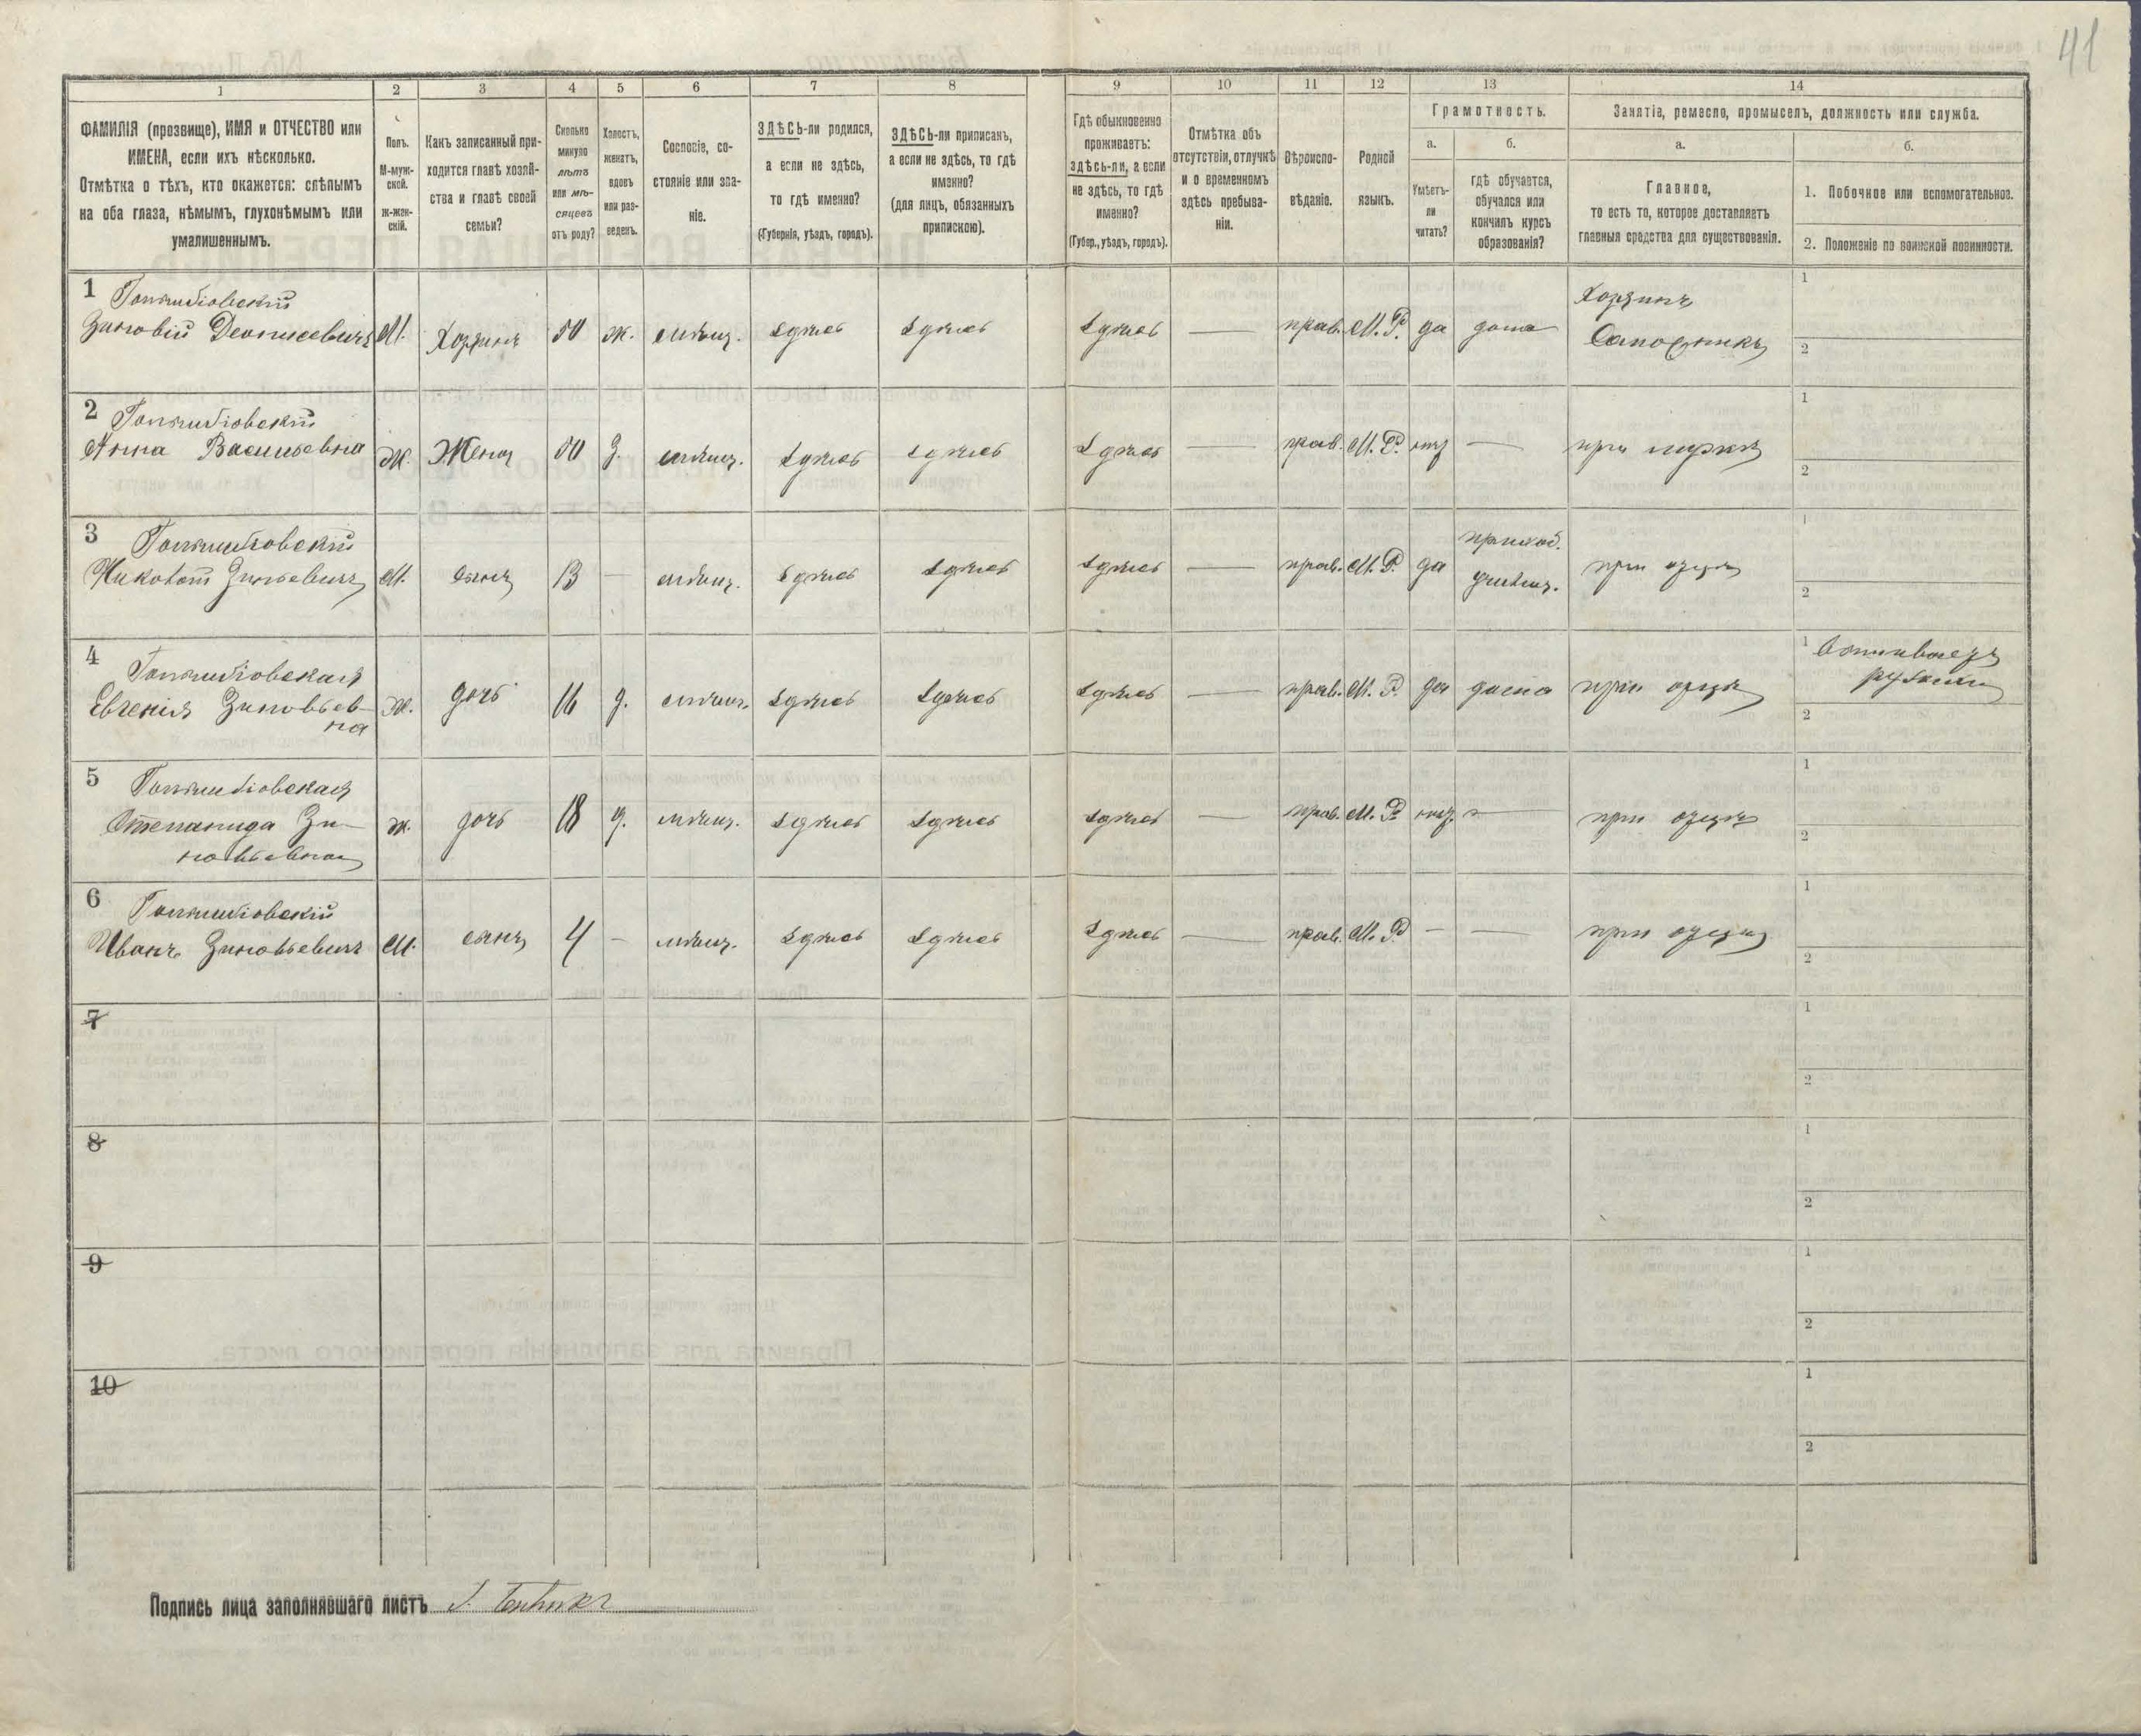 41
1 2 3 4 5 6 7 8 9 10 11 12 13 14
ФАМИЛІЯ (прозвище), ИМЯ и ОТЧЕСТВО или
ИМЕНА, если ихъ нѣсколько.
Отмѣтка о тѣхъ, кто окажется: слѣпымъ
на оба глаза, нѣмымъ, глухонѣмымъ или
умалишеннымъ.
Полъ.
М-муж-
ской.
Ж-жен-
скій.
Какъ записанный при-
ходится главѣ хозяй-
ства и главѣ своей
семьи?
Сколько
минуло
лѣтъ
или мѣ-
сяцевъ
отъ роду?
Холостъ,
женатъ,
вдовъ
или раз-
веденъ.
Сословіе, со-
стояніе или зва-
ніе.
ЗДѢСЬ-ли родился,
а если не здѣсь,
то гдѣ именно?
(Губернія, уѣздъ, городъ).
ЗДѢСЬ-ли приписанъ,
а если не здѣсь, то гдѣ
именно?
(для лицъ, обязанныхъ
припискою).
Гдѣ обыкновенно
проживаетъ:
здѣсь-ли, а если
не здѣсь, то гдѣ
именно?
(Губер., уѣздъ, городъ).
Отмѣтка объ
отсутствіи, отлучкѣ
и о временномъ
здѣсь пребыва-
ніи.
Вѣроиспо-
вѣданіе.
Родной
языкъ.
Грамотность.
а.
Умѣетъ-
ли
читать?
б.
гдѣ обучается,
обучался или
кончилъ курсъ
образованія?
Занятіе, ремесло, промыселъ, должность или служба.
а.
Главное,
то есть то, которое доставляетъ
главныя средства для существованія.
б.
1. Побочное или вспомогательное.
2. Положеніе по воинской повинности.
1
Зиновій Деонисевичъ М. Хозяинъ 50 ж. мѣщ. здѣсь здѣсь здѣсь — прав. М.Р. да дома Хозяинъ
Сапожникъ
1
2
2
Анна Васильевна Ж. Жена 50 з. мѣщ. здѣсь здѣсь здѣсь — прав. М.Р. нѣт — при мужѣ
1
2
3
Зиновьевичъ М. сынъ 13 — мѣщ. здѣсь здѣсь здѣсь — прав. М.Р. да приход.
училищ. при отцѣ
1
2
4
Евгенія Зиновьев-
на ж. дочь 16 д. мѣщ. здѣсь здѣсь здѣсь — прав. М.Р. да дома при отцѣ
1
2
5
Степанида Зи-
новьевна ж. дочь 18 д. мѣщ. здѣсь здѣсь здѣсь — прав. М.Р. нѣт. — при отцѣ
1
2
6
Иванъ Зиновьевичъ М. сынъ 4 — мѣщ. здѣсь здѣсь здѣсь — прав. М.Р. — — при отцѣ
1
2
7
1
2
8
1
2
9
1
2
10
1
2
Подпись лица заполнявшаго листъ